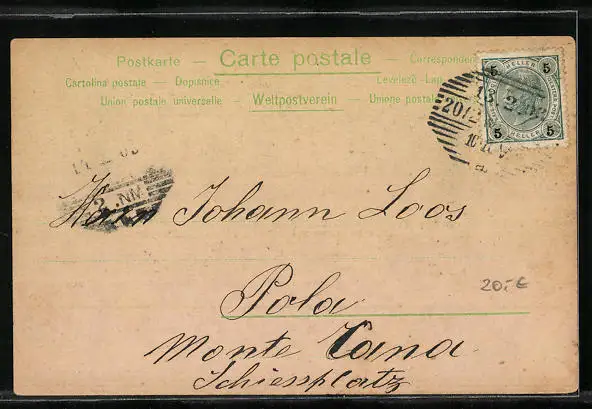 Postkarte — Carte postale — Corresponden
Cartolina postale — Dopisnice Levelező-Lap
Union postale universelle — Weltpostverein — Unione postale
5 HELLER 5
5 HELLER 5
20/2
2 NM
Herrn Johann Loos
20.-€
Pola
Monte Cana
Schiessplatz